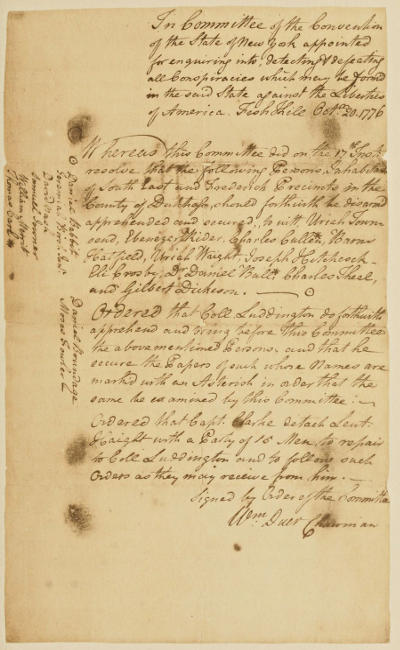 In Committee of the Convention
of the State of New York appointed
for enquiring into, detecting & defeating
all Conspiracies which may be formed
in the said State against the Liberties
of America. Fish Kill Octr. 20. 1776
Whereas this Committee did on the 17th Inst.
resolve that the following Persons, Inhabitants
of South East and Frederick Precincts in the
County of Dutchess, should forthwith be disarmed
apprehended and secured, to witt, Uriah Town-
send, Ebenezer Rider, Charles Cullen, Barns
Hatfield, Uriah Waight, Joseph Hitchcock
Eli Crosby, Dr. Daniel Bull, Charles Theel,
and Gilbert Dickeson.
Ordered that Coll Luddington do forthwith
apprehend and bring before this Committee
the abovementioned Persons, and that he
secure the Papers of such whose Names are
markd with an Asterish in order that the
same be examined by this Committee:
Ordered that Capt. Clarke detach Leut.
Haight with a Party of 15 Men, to repair
to Coll Luddington and to follow such
Orders as they may receive from him.
Signed by Order of the Committee
Wm Duer Chairman
Daniel Babbit
Jeremiah
David
Samuel
William
Thomas
Daniel Brundage
Moses Fowler